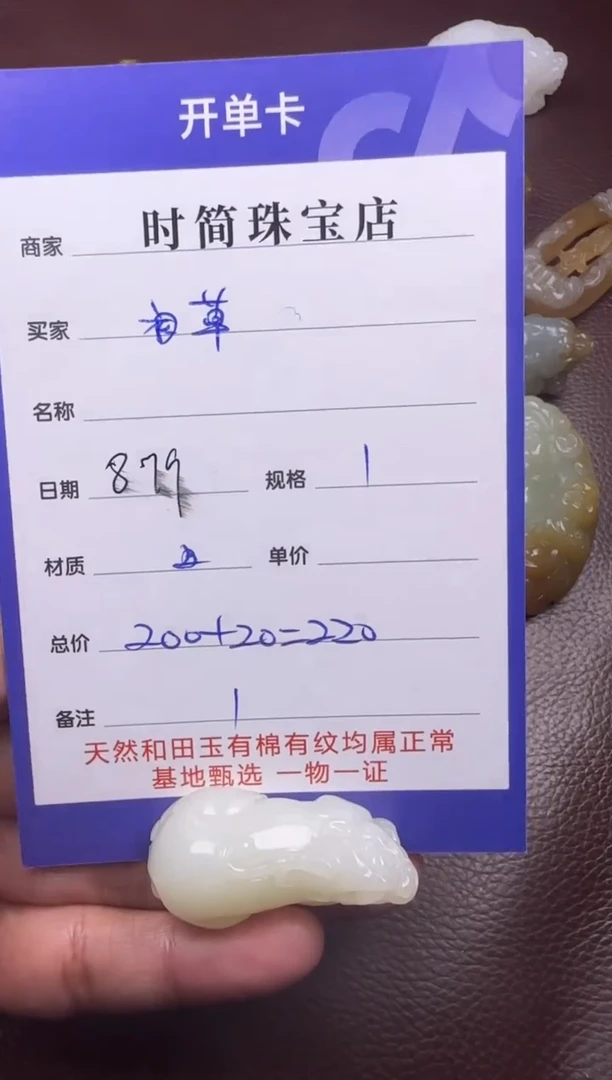 开单卡
商家 时简珠宝店
买家 香草
名称
日期 879 规格 1
材质 单价
总价 200+20=220
备注 1
天然和田玉有棉有纹均属正常
基地甄选 一物一证